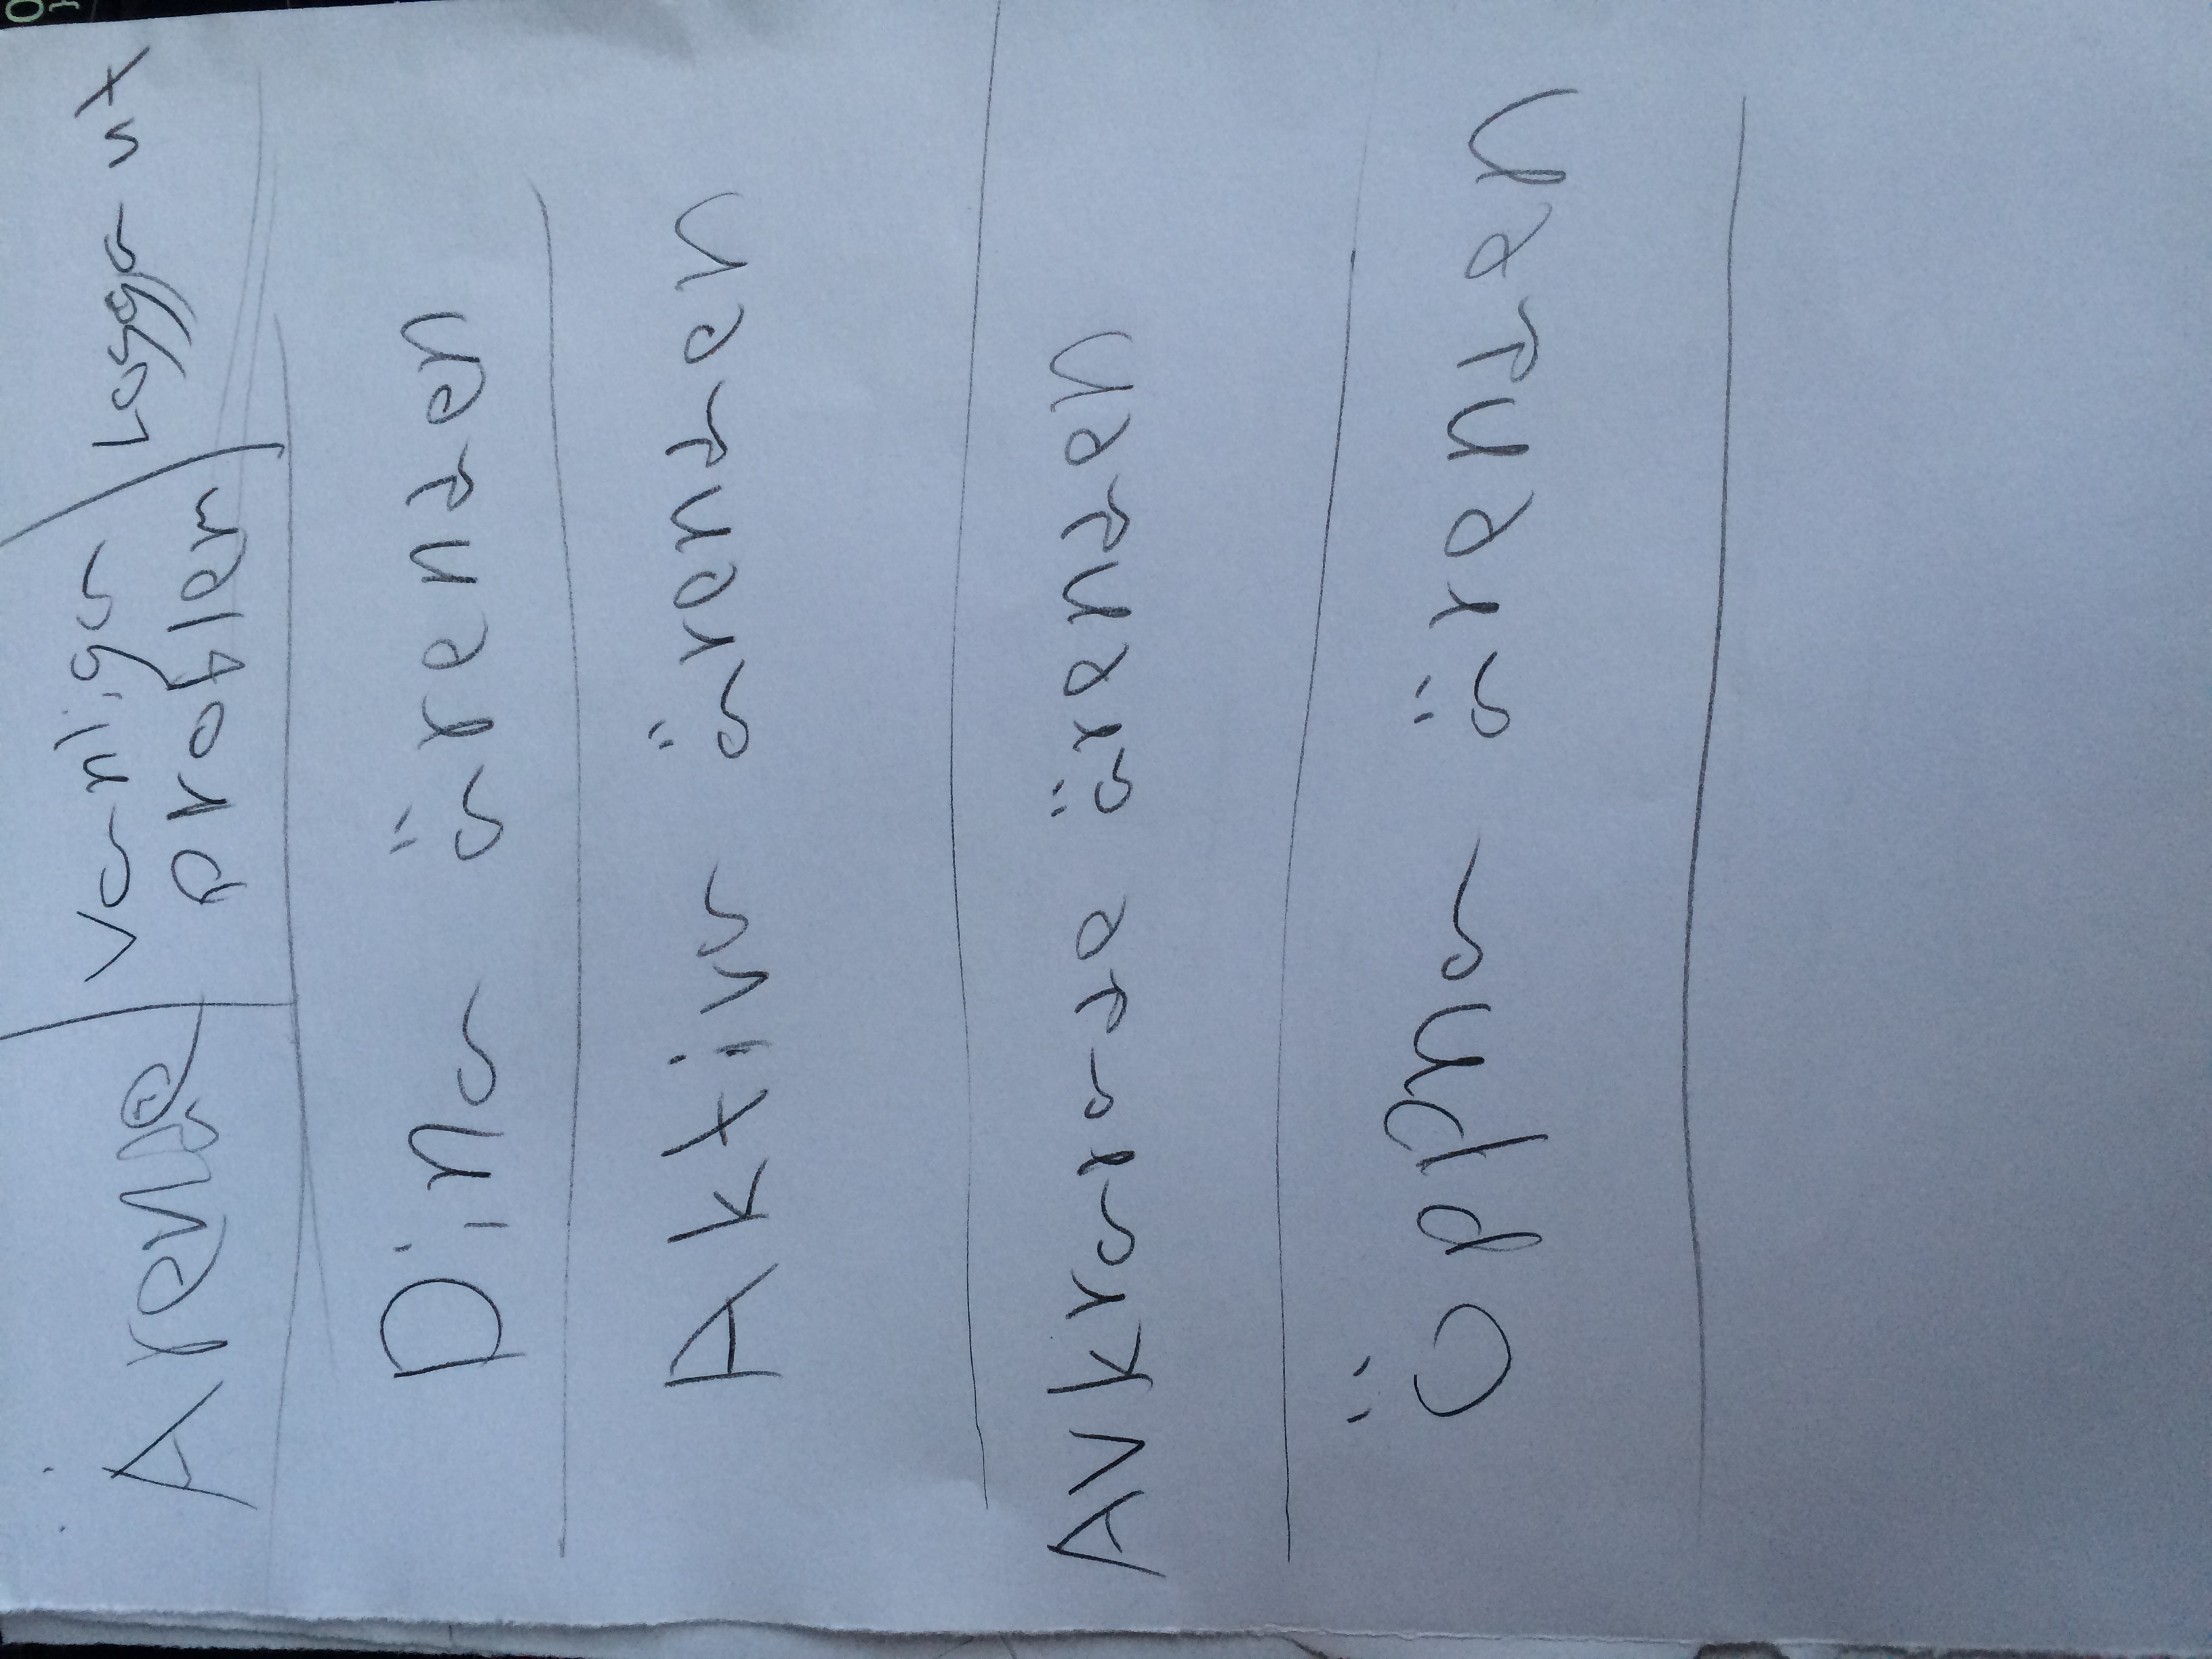 Ärende
Vanliga
problem
Logga ut
Dina ärenden
Aktiva ärenden
Avkrarade ärenden
Öppna ärenden